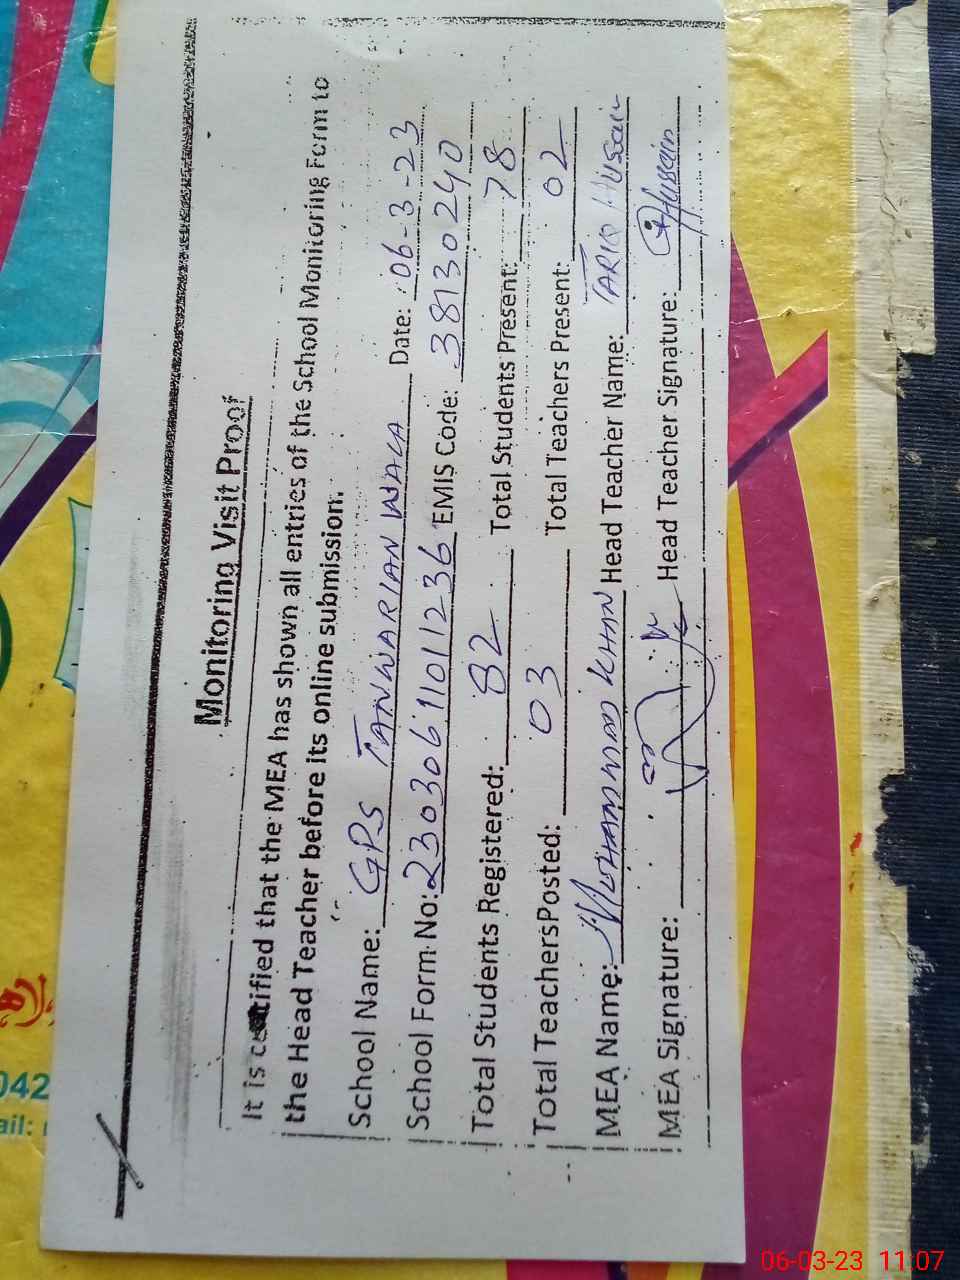 Monitoring Visit Proof
It is certified that the MEA has shown all entries of the School Monitoring Form to
the Head Teacher before its online submission.
School Name: GPS TANWARIAN WALA Date: 06-3-23
School Form No: 23030611011236 EMIS Code: 38130240
Total Students Registered: 82 Total Students Present: 78
Total Teachers Posted: 03 Total Teachers Present: 02
MEA Name: MUHAMMAD KHAN Head Teacher Name: TARIQ Hussain
MEA Signature: Head Teacher Signature: Hussain
042
ail:
06-03-23 11:07